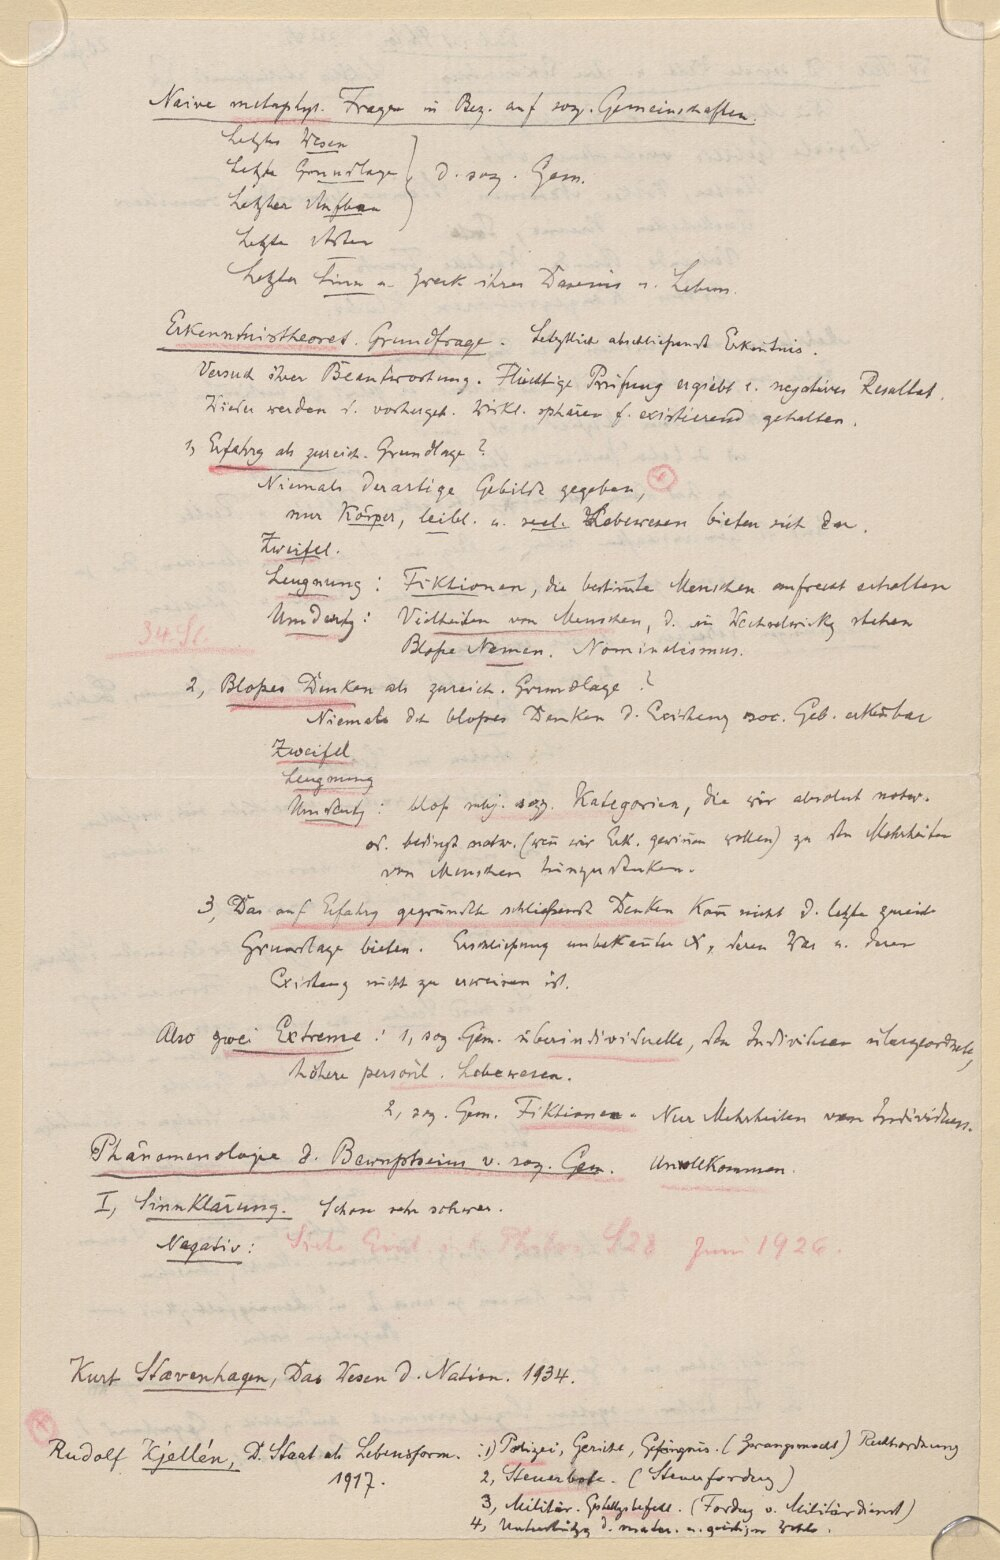 Naive metaphys. Fragen in Bez. auf soz. Gemeinschaften.
Letztes Wesen
Letzte Grundlage } d. soz. Gem.
Letzter Aufbau
Letzte Arten
Letzter Sinn u. Zweck ihres Daseins u. Lebens.
Erkenntnistheoret. Grundfrage. Letztlich abschließende Erkentnis.
Versuch ihrer Beantwortung. Flüchtige Prüfung ergiebt e. negatives Resultat.
Wieder werden d. vorhergeh. Wirkl. sphären f. existierend gehalten.
1, Erfahrg als zureich. Grundlage?
Niemals derartige Gebilde gegeben,
nur Körper, leibl. u. seel. Lebewesen bieten sich dar.
Zweifel.
Leugnung: Fiktionen, die bestimte Menschen aufrecht erhalten
Umdeutg: Vielheiten von Menschen, d. in Wechselwirkg stehen
34 Sl.
Bloße Namen. Nominalismus.
2, Bloßes Denken als zureich. Grundlage?
Niemals dch bloßes Denken d. Existenz soc. Geb. erkenbar
Zweifel
Leugnung
Umdeutg: bloß subj. Kategorien, die wir absolut notw.
od. bedingt notw. (wen wir Erk. gewinen wollen) zu den Mehrheiten
von Menschen hinzudenken.
3, Das auf Erfahrg gegründete schließende Denken kan nicht d. letzte zureich
Grundlage bieten. Erschließung unbekanter X, deren Was u. deren
Existenz nicht zu erweisen ist.
Also zwei Extreme: 1, soz Gem. überindividuelle, den Individuen übergeordnete,
höhere persönl. Lebewesen.
2, soz. Gem. Fiktionen. Nur Mehrheiten von Individuen.
Phänomenologie d. Bewußtseins v. soz. Gem. Unvollkommen.
I, Sinnklärung. Schon sehr schwer.
Negativ: Siehe S 28 Juni 1926.
Kurt Stavenhagen, Das Wesen d. Nation. 1934.
Rudolf Kjellén, D. Staat als Lebensform.
1917.
1) Polizei, Gericht, Gefängnis. (Zwangsmacht) Rechtsordnung
2, Steuerbote. (Steuerfordrg)
3, Militär. Gestellgsbefehl. (Fordrg v. Militärdienst)
4, Unterstützg d. mater. u. geistigen Wohls.